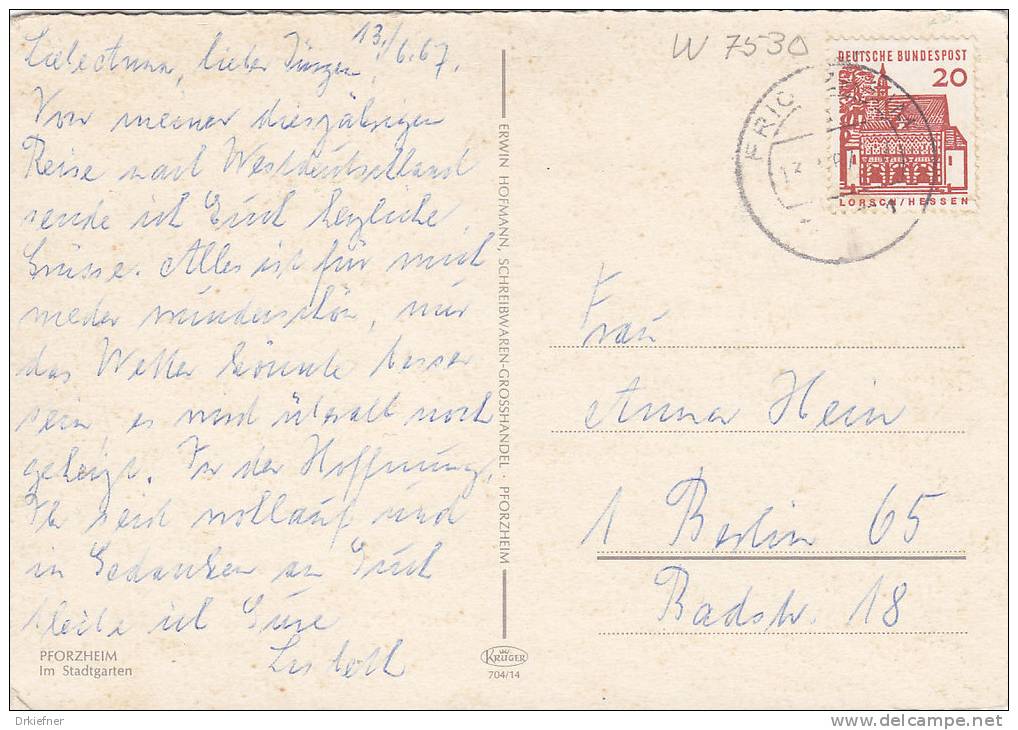 13./6.67.
Liebe Anna, lieber Jürgen!
Von meiner diesjährigen
Reise nach Westdeutschland
sende ich Euch herzliche
Grüsse. Alles ist für mich
wieder wunderschön, nur
das Wetter könnte besser
sein, es wird überall noch
geheizt. In der Hoffnung,
Ihr seid wollauf und
in Gedanken an Euch
bleibe ich Eure
PFORZHEIM
Im Stadtgarten
ERWIN HOFMANN, SCHREIBWAREN-GROSSHANDEL · PFORZHEIM
KRÜGER
704/14
W 7530
DEUTSCHE BUNDESPOST
20
LORSCH/HESSEN
Frau
Anna Hein
1 Berlin 65
Badstr. 18
Drkiefner
www.delcampe.net